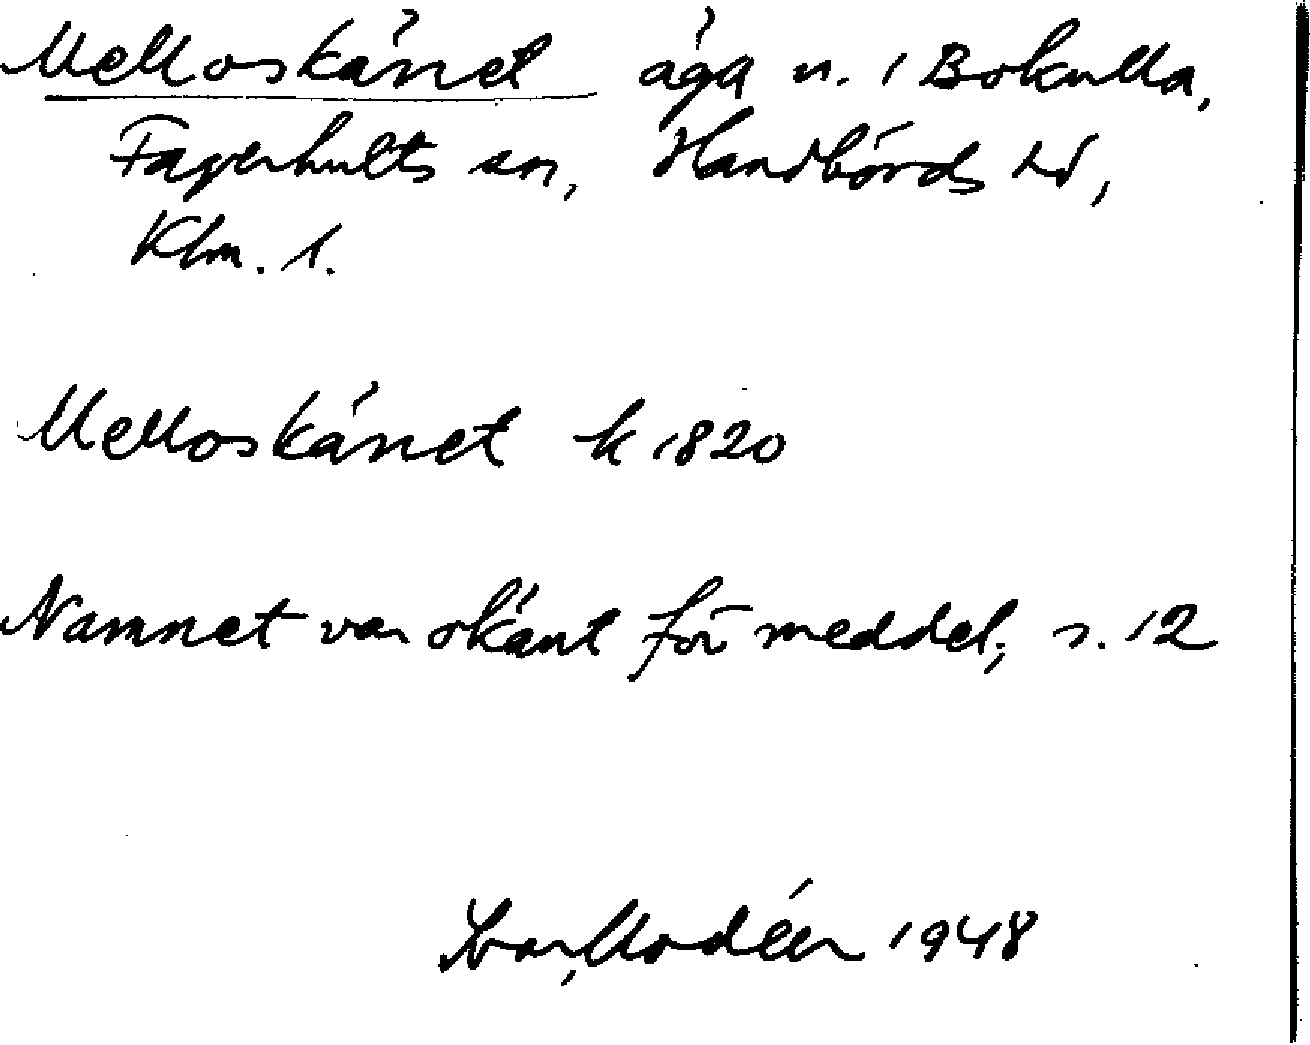 Melloskänet äga n. i Bokulla,
Fagerhults sn, Handbörds hd,
Klm. l.
Melloskänet k 1820
Namnet var okänt för meddel; s. 12
Ivar Modéer 1948